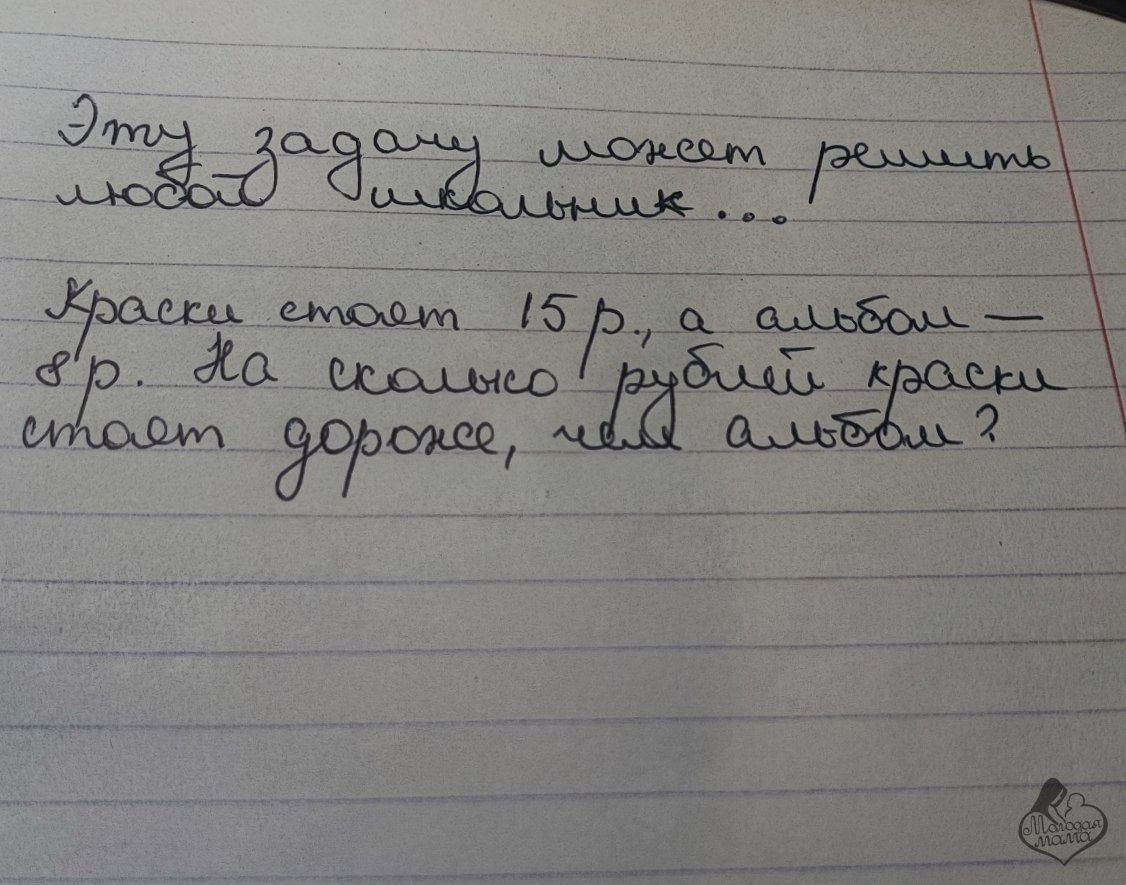 Эту задачу может решить
любой школьник...
Краски стоят 15 р., а альбом —
8 р. На сколько рублей краски
стоят дороже, чем альбом?
Молодая
мама